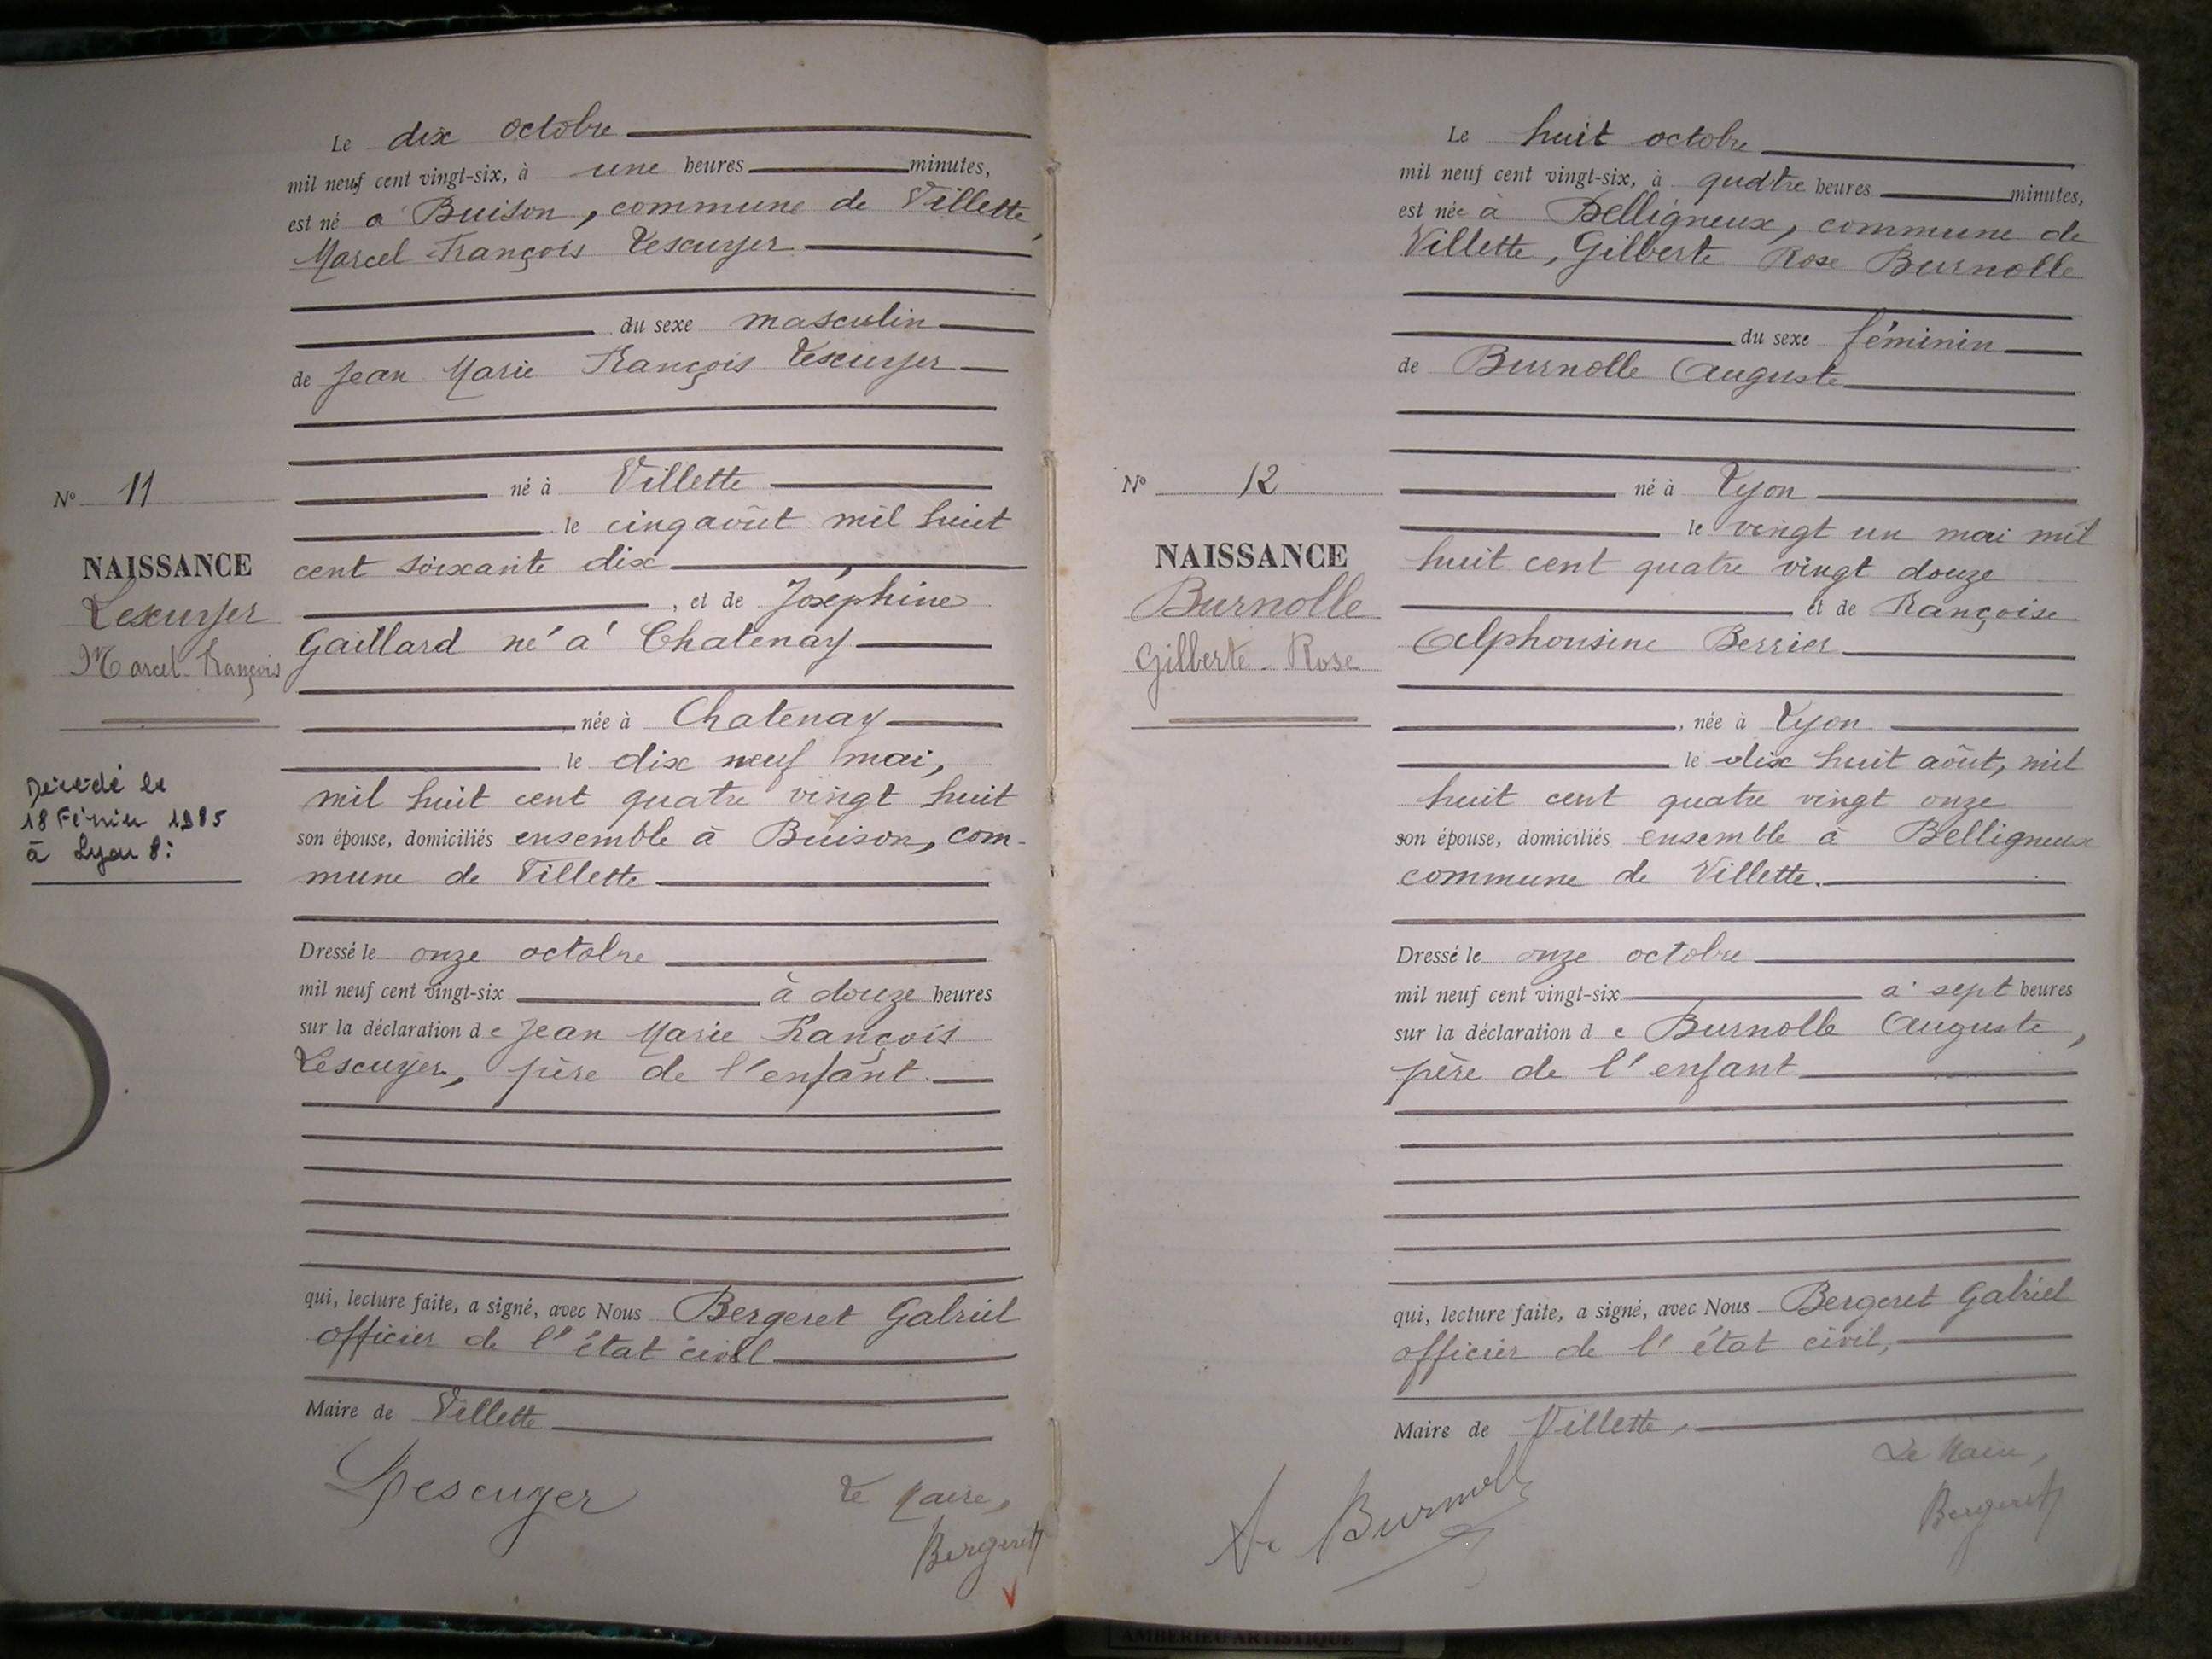 Le dix octobre
mil neuf cent vingt-six, à une heures minutes,
est né à Buison, commune de Villette,
Marcel François Lescuyer
du sexe masculin
de Jean Marie François Lescuyer
né à Villette
le cinq août mil huit
cent soixante dix
, et de Joséphine
Gaillard né à Chatenay
née à Chatenay
le dix neuf mai,
mil huit cent quatre vingt huit
son épouse, domiciliés ensemble à Buison, com-
mune de Villette
Dressé le onze octobre
mil neuf cent vingt-six à douze heures
sur la déclaration de Jean Marie François
Lescuyer, père de l'enfant.
qui, lecture faite, a signé, avec Nous Bergeret Gabriel
officier de l'état civil
Maire de Villette
Lescuyer
Le Maire,
Bergeret
N° 11
NAISSANCE
Lescuyer
Marcel-François
Décédé le
18 Février 1985
à Lyon 8:
Le huit octobre
mil neuf cent vingt-six, à quatre heures minutes,
est née à Belligneux, commune de
Villette, Gilberte Rose Burnolle
du sexe féminin
de Burnolle Auguste
né à Lyon
le vingt un mai mil
huit cent quatre vingt douze
et de Françoise
Alphonsine Berrier
, née à Lyon
le dix huit août, mil
huit cent quatre vingt onze
son épouse, domiciliés ensemble à Belligneux
commune de Villette.
Dressé le onze octobre
mil neuf cent vingt-six à sept heures
sur la déclaration de Burnolle Auguste,
père de l'enfant
qui, lecture faite, a signé, avec Nous Bergeret Gabriel
officier de l'état civil,
Maire de Villette,
Le Maire,
Bergeret
Burnolle
N° 12
NAISSANCE
Burnolle
Gilberte-Rose
AMBERIEU ARTISTIQUE